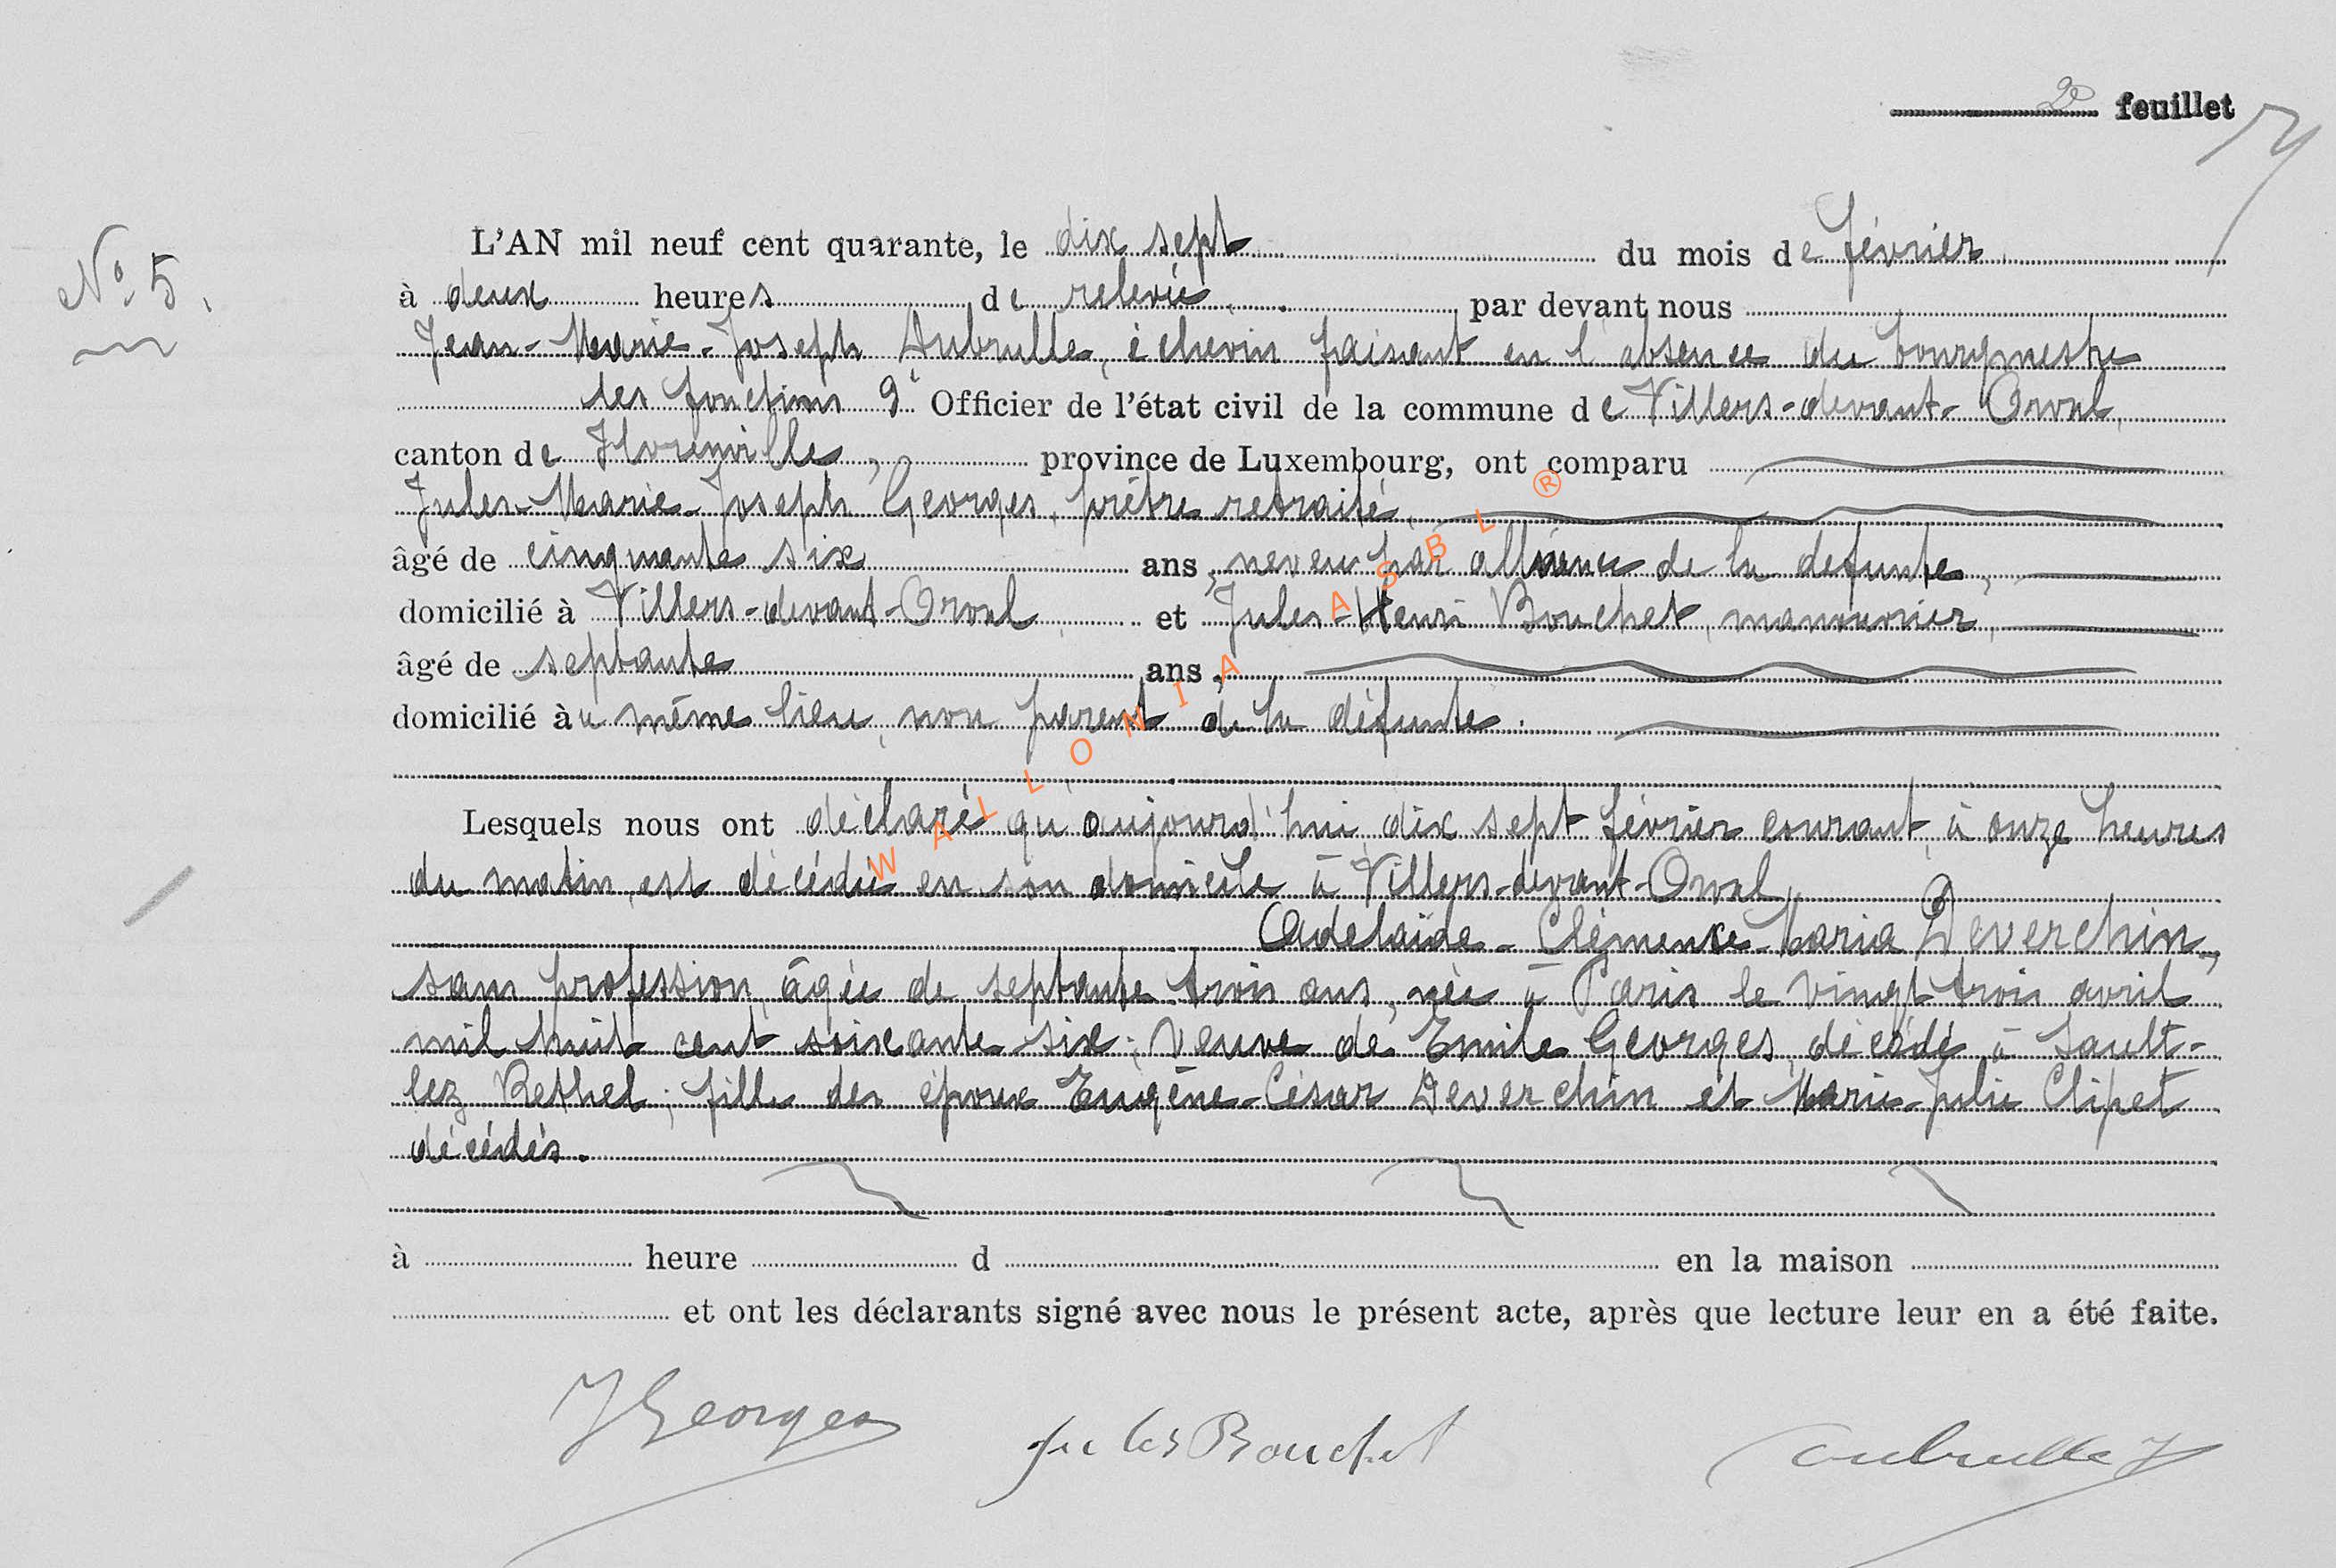 2e feuillet
N° 5.
L'AN mil neuf cent quarante, le dix sept du mois de février
à deux heures de relevée, par devant nous
Jean-Marie-Joseph Aubrulle, échevin faisant en l'absence du bourgmestre
les fonctions d' Officier de l'état civil de la commune de Villers-devant-Orval,
canton de Florenville, province de Luxembourg, ont comparu
Jules-Marie-Joseph Georges, prêtre retraité,
âgé de cinquante six ans, neveu par alliance de la défunte,
domicilié à Villers-devant-Orval et Jules-Henri Bouchet, manouvrier,
âgé de septante ans,
domicilié au même lieu, non parent de la défunte.
Lesquels nous ont déclaré qu'aujourd'hui dix sept février courant, à onze heures
du matin, est décédée en son domicile à Villers-devant-Orval
Adelaïde-Clémence-Maria Deverchin,
sans profession, âgée de septante trois ans, née à Paris le vingt trois avril
mil huit cent soixante-six; veuve de Emile Georges, décédé à Sault-
lez Rethel; fille des époux Eugène-César Deverchin et Marie-Julie Clipet
décédés.
à heure d en la maison
et ont les déclarants signé avec nous le présent acte, après que lecture leur en a été faite.
JGeorges Jules Bouchet aubrulle J
WALLONIA ASBL ®